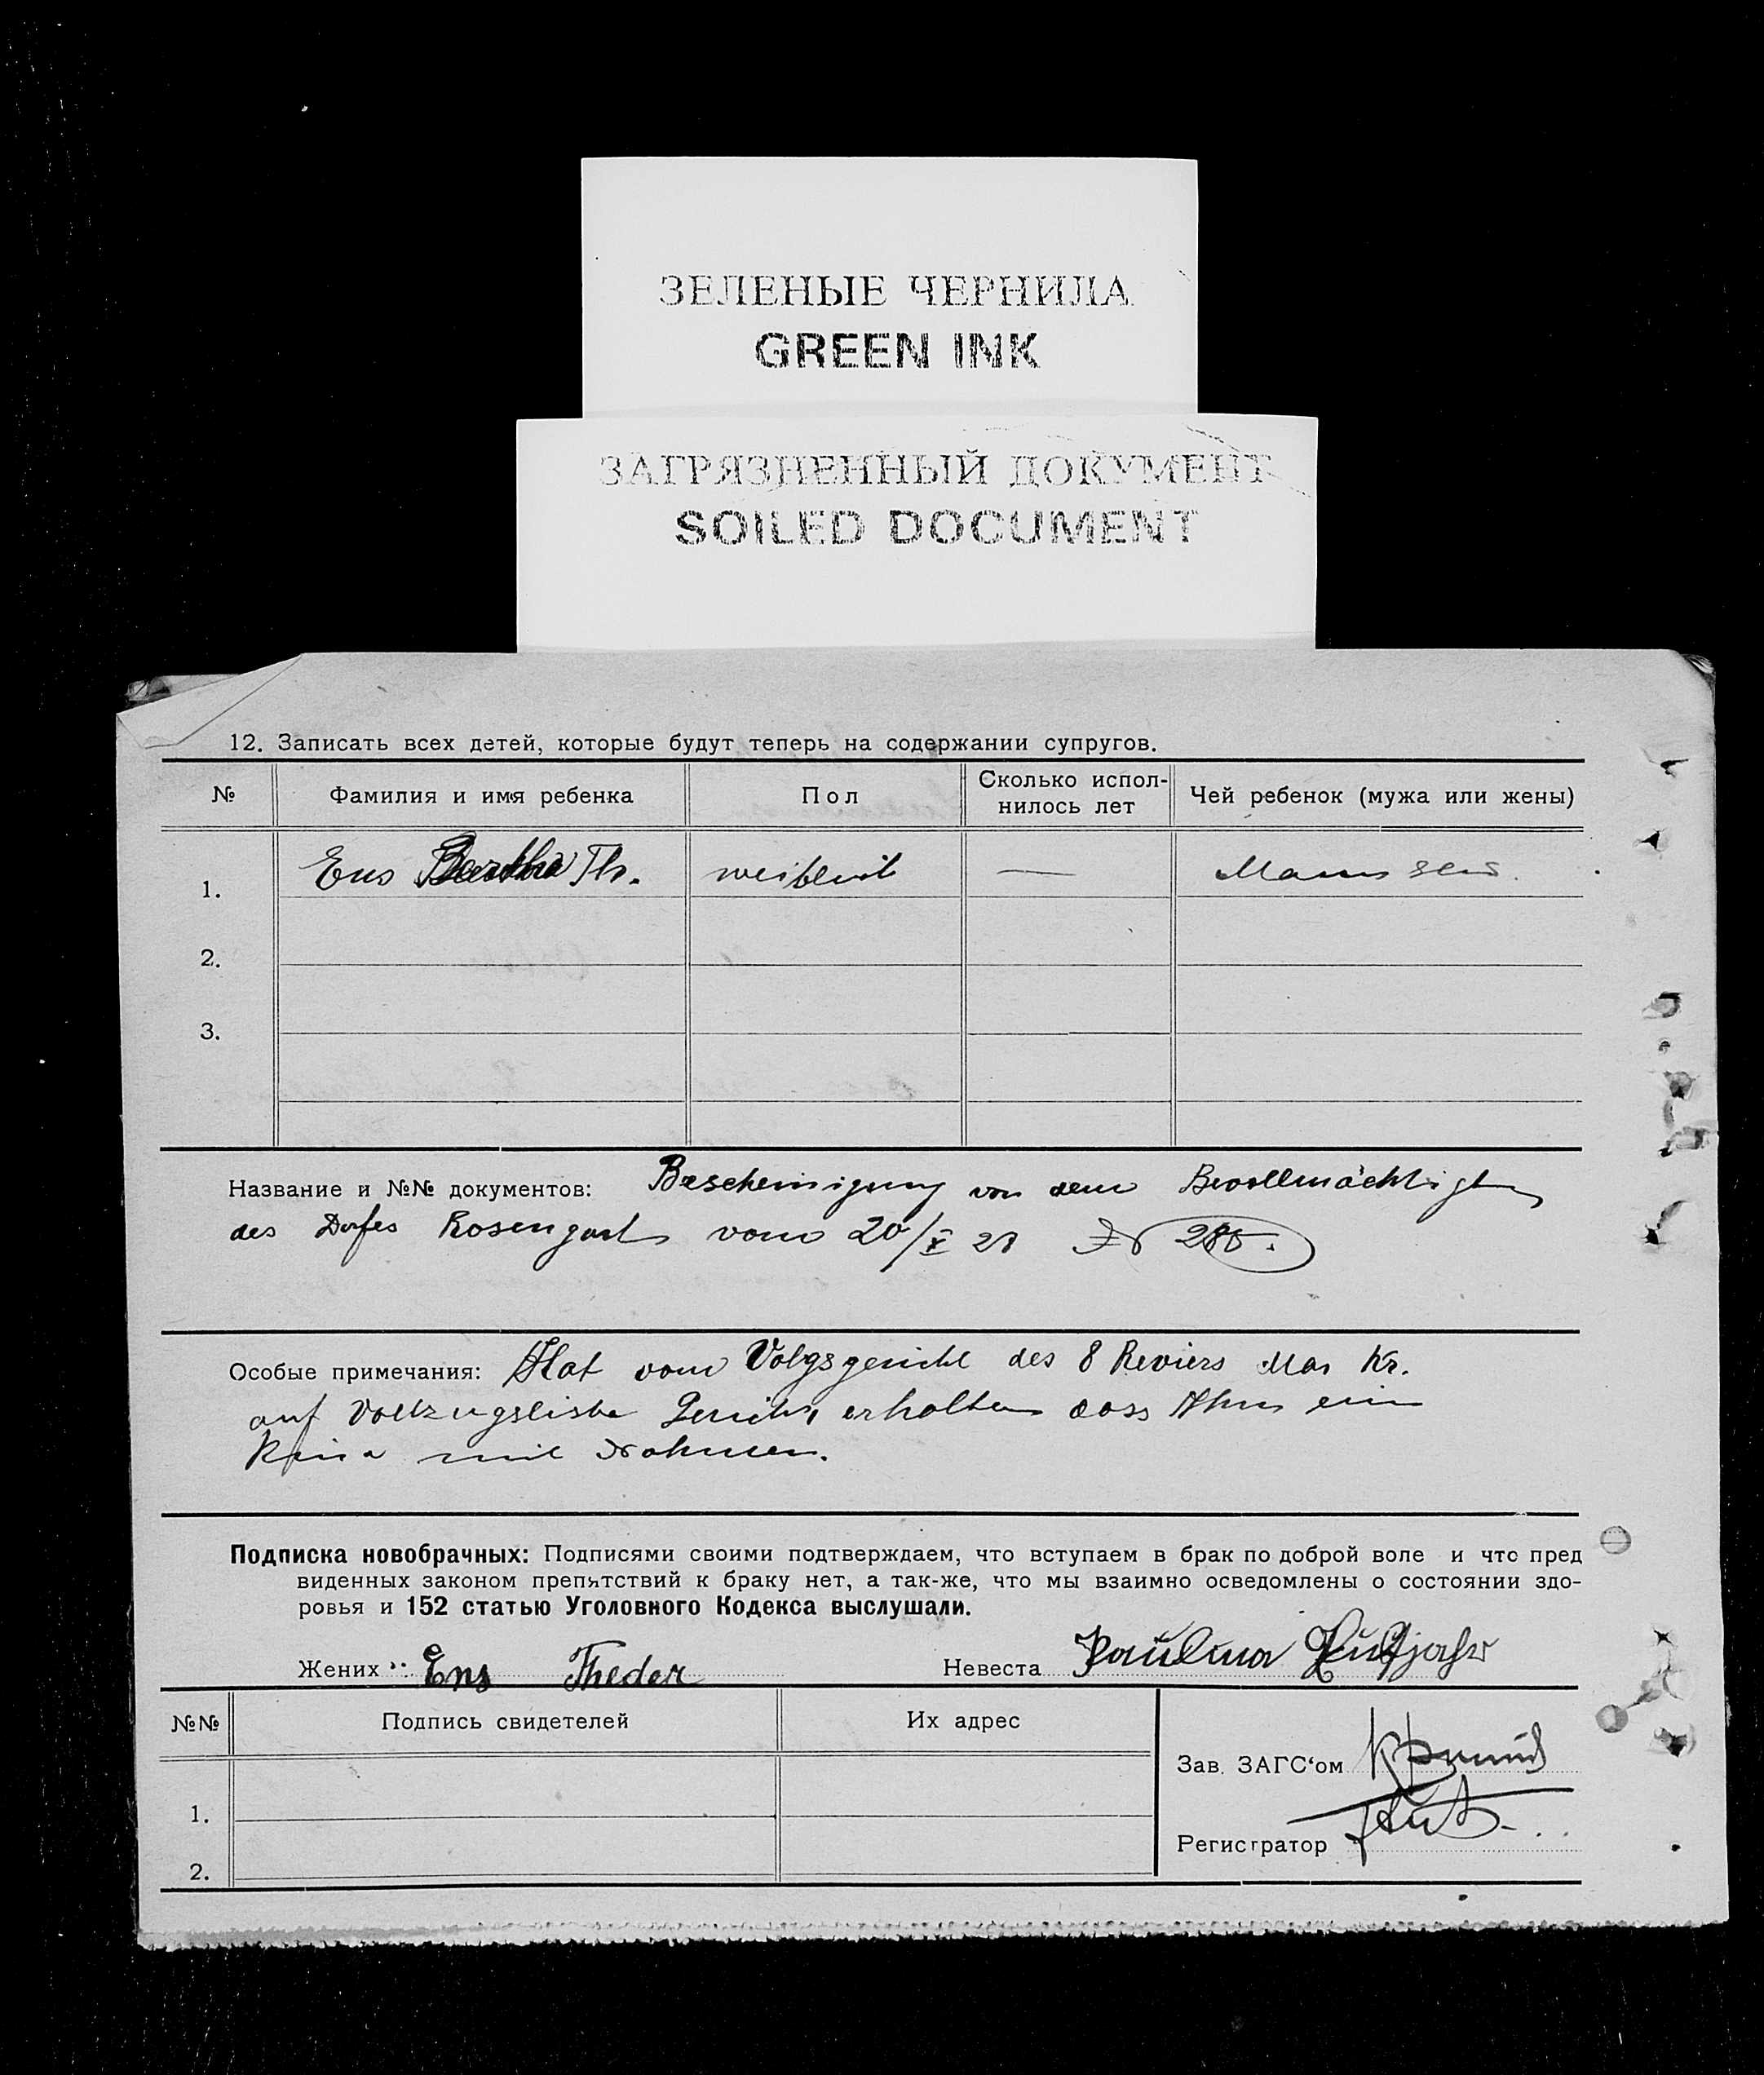 ЗЕЛЕНЫЕ ЧЕРНИЛА
GREEN INK
ЗАГРЯЗНЕННЫЙ ДОКУМЕНТ
SOILED DOCUMENT
12. Записать всех детей, которые будут теперь на содержании супругов.
№ Фамилия и имя ребенка Пол Сколько испол-
нилось лет Чей ребенок (мужа или жены)
1. Ens Bertha Th. weiblich — Mannes
2.
3.
Название и №№ документов: Bescheinigung von dem Bevollmächtigten
des Dorfes Rosengart vom 20/X 28 №
Особые примечания: Hat vom Volgsgericht des 8 Reviers Mar Kr.
auf Vollzugsliste erhalten dass Ihm ein
Kind mit
Подписка новобрачных: Подписями своими подтверждаем, что вступаем в брак по доброй воле и что пред
виденных законом препятствий к браку нет, а так-же, что мы взаимно осведомлены о состоянии здо-
ровья и 152 статью Уголовного Кодекса выслушали.
Жених Ens Theder Невеста Paulina Gutjahr
№№ Подпись свидетелей Их адрес
Зав. ЗАГС'ом
1.
Регистратор
2.